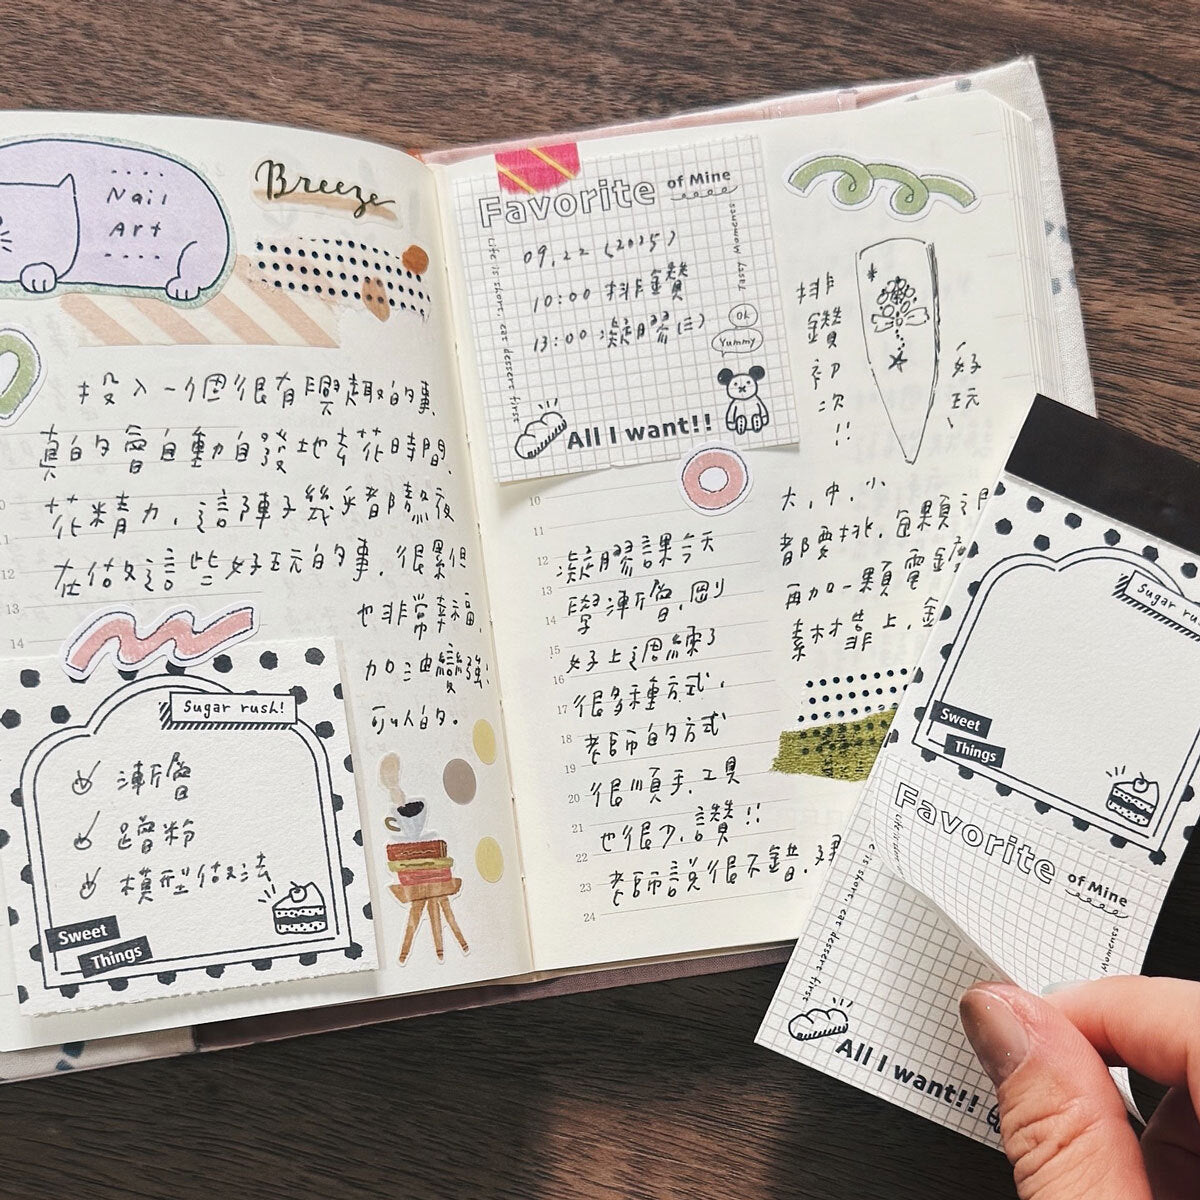 Nail
Art
Breeze
投入一個很有興趣的事,
真的會自動自發地去花時間,
花精力,這陣子幾乎都熬夜
在做這些好玩的事,很累但
也非常幸福,
加油變強
可以的。
Sugar rush!
漸層
蹭粉
模型做法
Sweet
Things
Favorite
of Mine
Life is short, eat dessert first
Tasty Moments
09.22 (2025)
10:00 排鑽
13:00 凝膠(三)
Ok
Yummy
All I want!!
排鑽初次!!
好玩
10
11
12
13
14
15
16
17
18
19
20
21
22
23
24
凝膠課今天
學漸層,剛
好上週練了
很多種方式,
老師的方式
很順手,工具
也很少,讚!!
老師說很不錯,
大,中,小
都要排,每顆
再加一顆電鍍
素材靠上,金
12
13
14
Sugar rus
Sweet
Things
Favorite
of Mine
e is short, eat dessert first
Moments
All I want!!